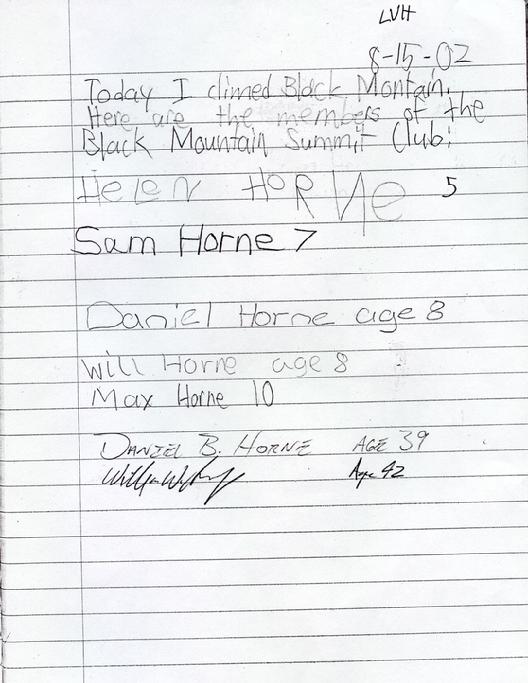 LVH
8-15-02
Today I climed Black Montain.
Here are the members of the
Black Mountain Summit Club:
HeleN HORNe 5
Sam Horne 7
Daniel Horne age 8
Will Horne age 8
Max Horne 10
DANIEL B. HORNE AGE 39
Age 42